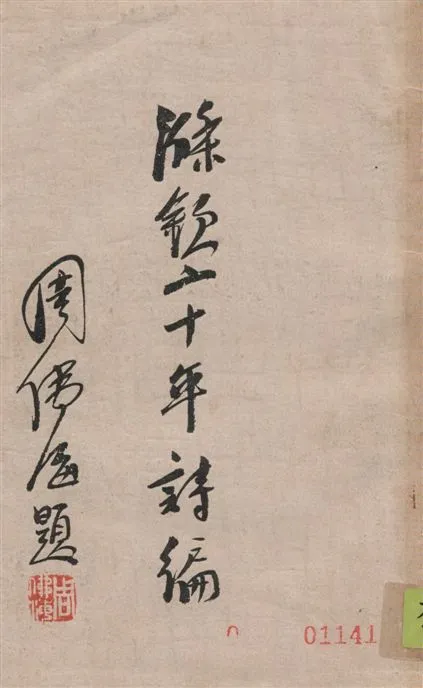 二十年詩編
周佛海題
周佛海
01141